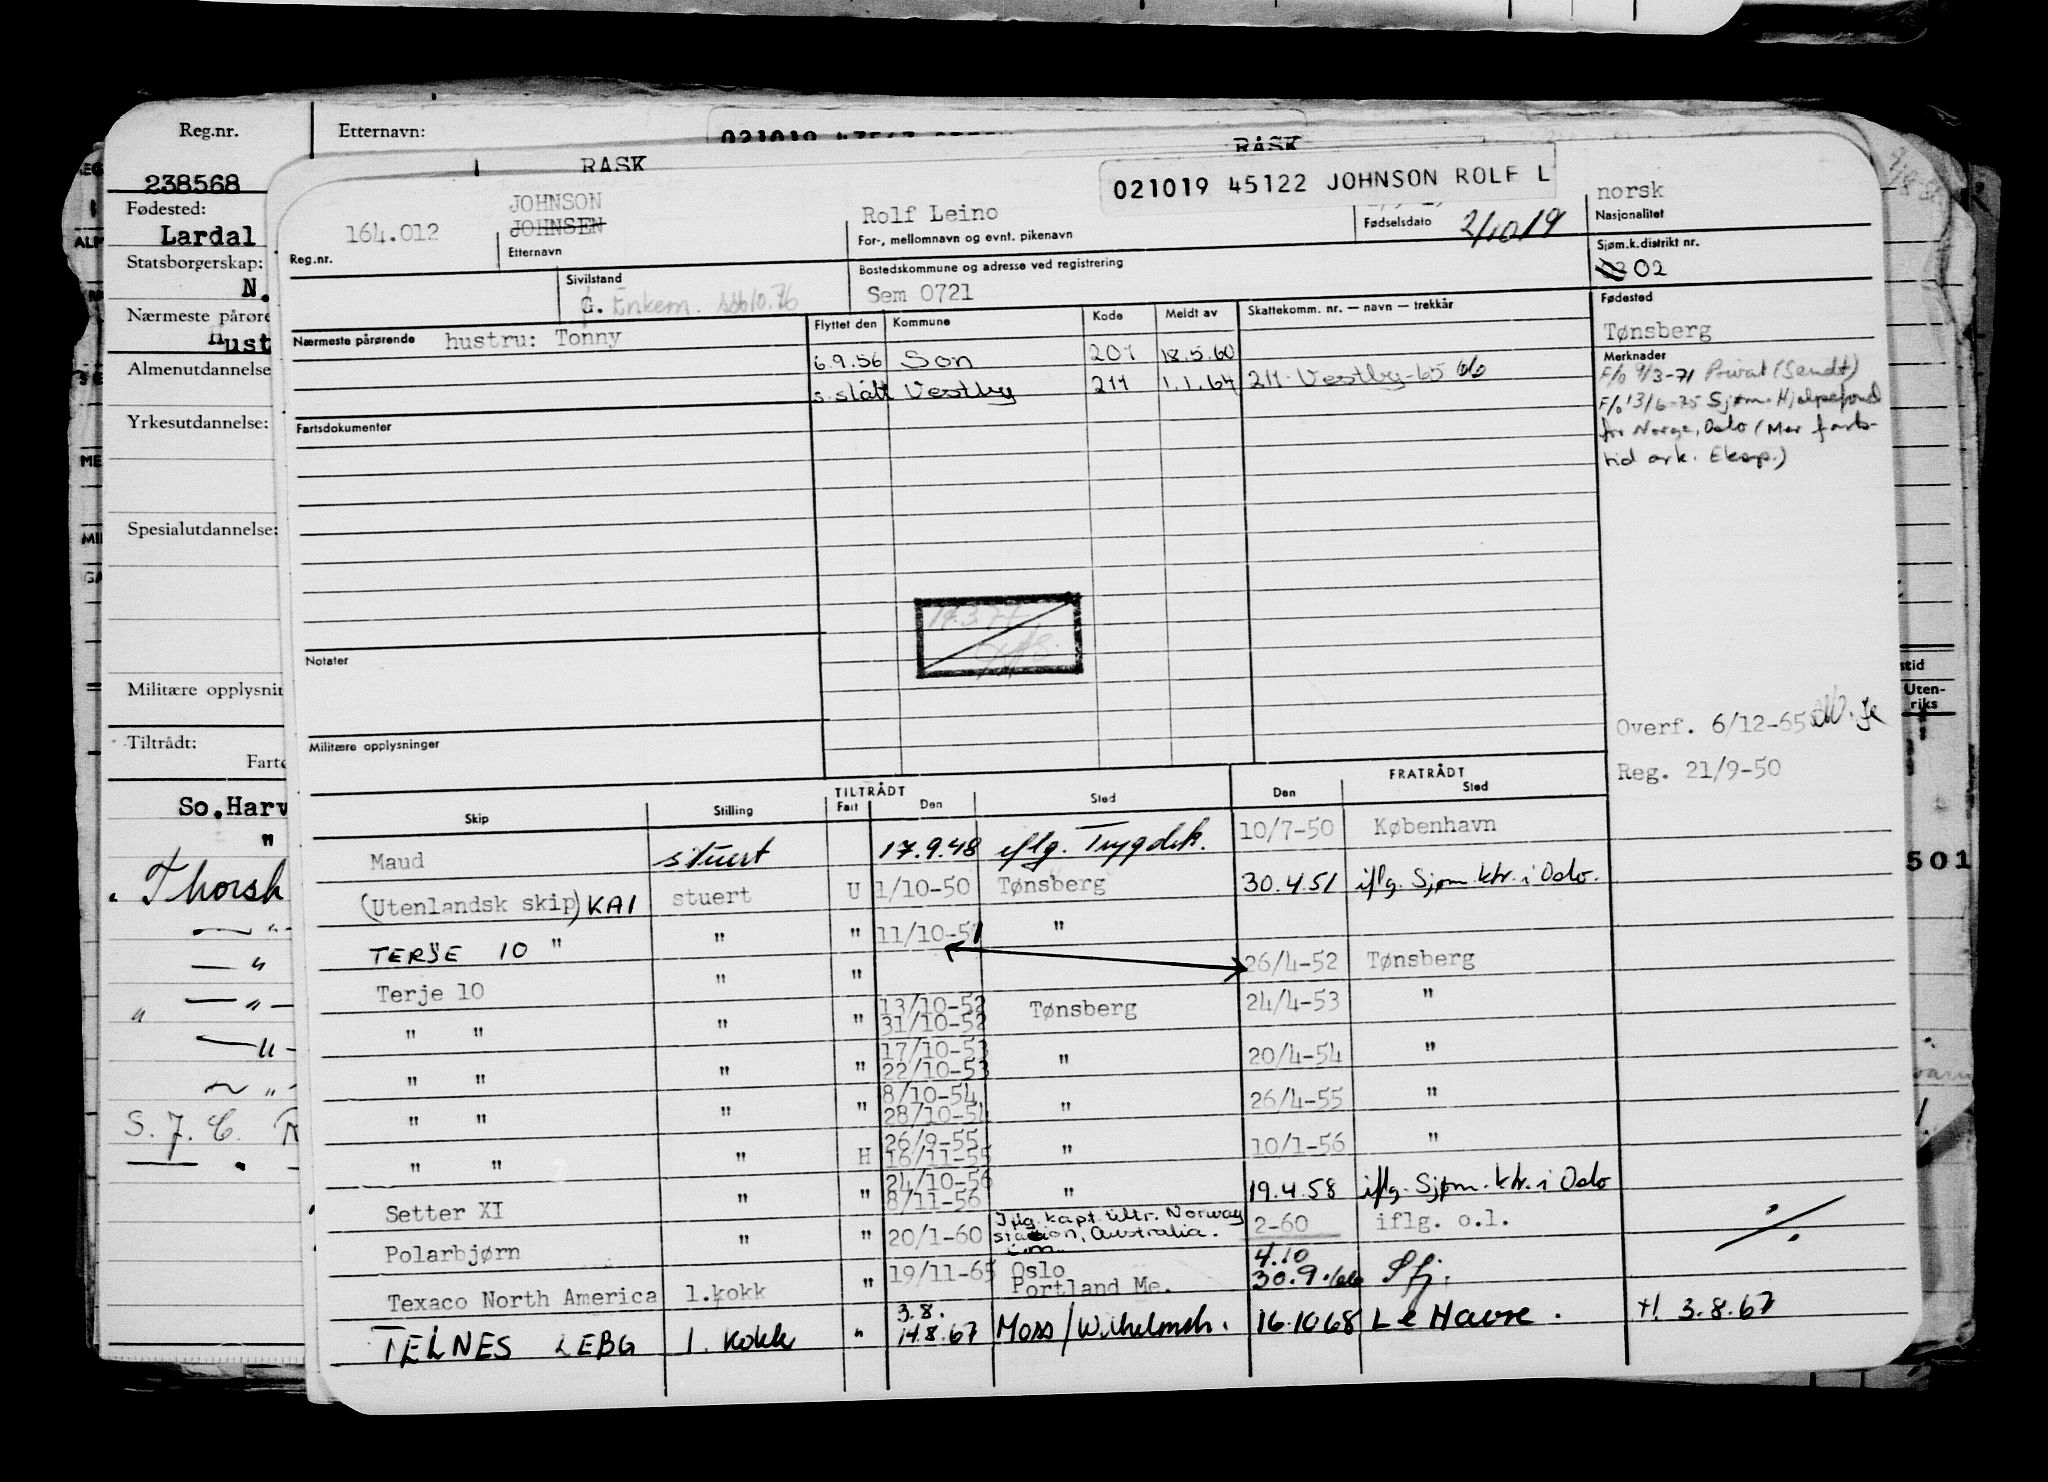 Reg.nr.
Etternavn:
238568
Fødested:
Lardal
Statsborgerskap:
N.
Nærmeste pårøre
Hust
Almenutdannelse
Yrkesutdannelse:
Spesialutdannelse:
Militære opplysnin
Tiltrådt:
Farte
So.Harv
"
Thorsh
S. J. C.
RASK
RASK
021019 45122 JOHNSON ROLF L
164.012
Reg.nr.
JOHNSON
JOHNSEN
Etternavn
Rolf Leino
For-, mellomnavn og evnt. pikenavn
Fødselsdato 2/10 19
norsk
Nasjonalitet
Sjøm.k.distrikt nr.
02
Sivilstand
G. Enkem.
Bostedskommune og adresse ved registrering
Sem 0721
Fødested
Tønsberg
Nærmeste pårørende hustru: Tonny
Flyttet den Kommune Kode Meldt av Skattekomm. nr. — navn — trekkår
6.9.56 Son 201 18.5.60
s. slått Vestby 211 1.1.64 211 Vestby-65
Merknader
F/o 9/3-71 Privat (Sendt)
F/o 13/6-75 Sjøm. Hjelpefond
for Norge, Oslo (Mer farts-
tid ark. Eksp.)
Fartsdokumenter
Notater
Militære opplysninger
Overf. 6/12-65
Reg. 21/9-50
TILTRÅDT FRATRÅDT
Skip Stilling Fart Den Sted Den Sted
Maud stuert 17.9.48 iflg. Trygdek. 10/7-50 København
(Utenlandsk skip) KAI stuert U 1/10-50 Tønsberg 30.4.51 iflg. Sjøm.ktr. i Oslo.
TERJE 10 " " " 11/10-51 "
Terje 10 " " 26/4-52 Tønsberg
" " " " 13/10-52 31/10-52 Tønsberg 24/4-53 "
" " " " 17/10-53 22/10-53 " 20/4-54 "
" " " " 8/10-54 28/10-54 " 26/4-55 "
" " " H 26/9-55 16/11-55 " 10/1-56 "
Setter XI " " 24/10-56 8/11-56 " 19.4.58 iflg. Sjøm.ktr. i Oslo
Polarbjørn " " 20/1-60 Iflg. kapt. tiltr. Norway station, Australia. 2-60 iflg. o.l.
Texaco North America 1.kokk " 19/11-65 Oslo Portland Me. 4.10 30.9. Sfj.
TELNES LEBG 1. kokk " 3.8. 14.8.67 Moss/Wilhelmsh. 16.10 68 Le Havre. t! 3.8.67
stid
Uten-
riks
501